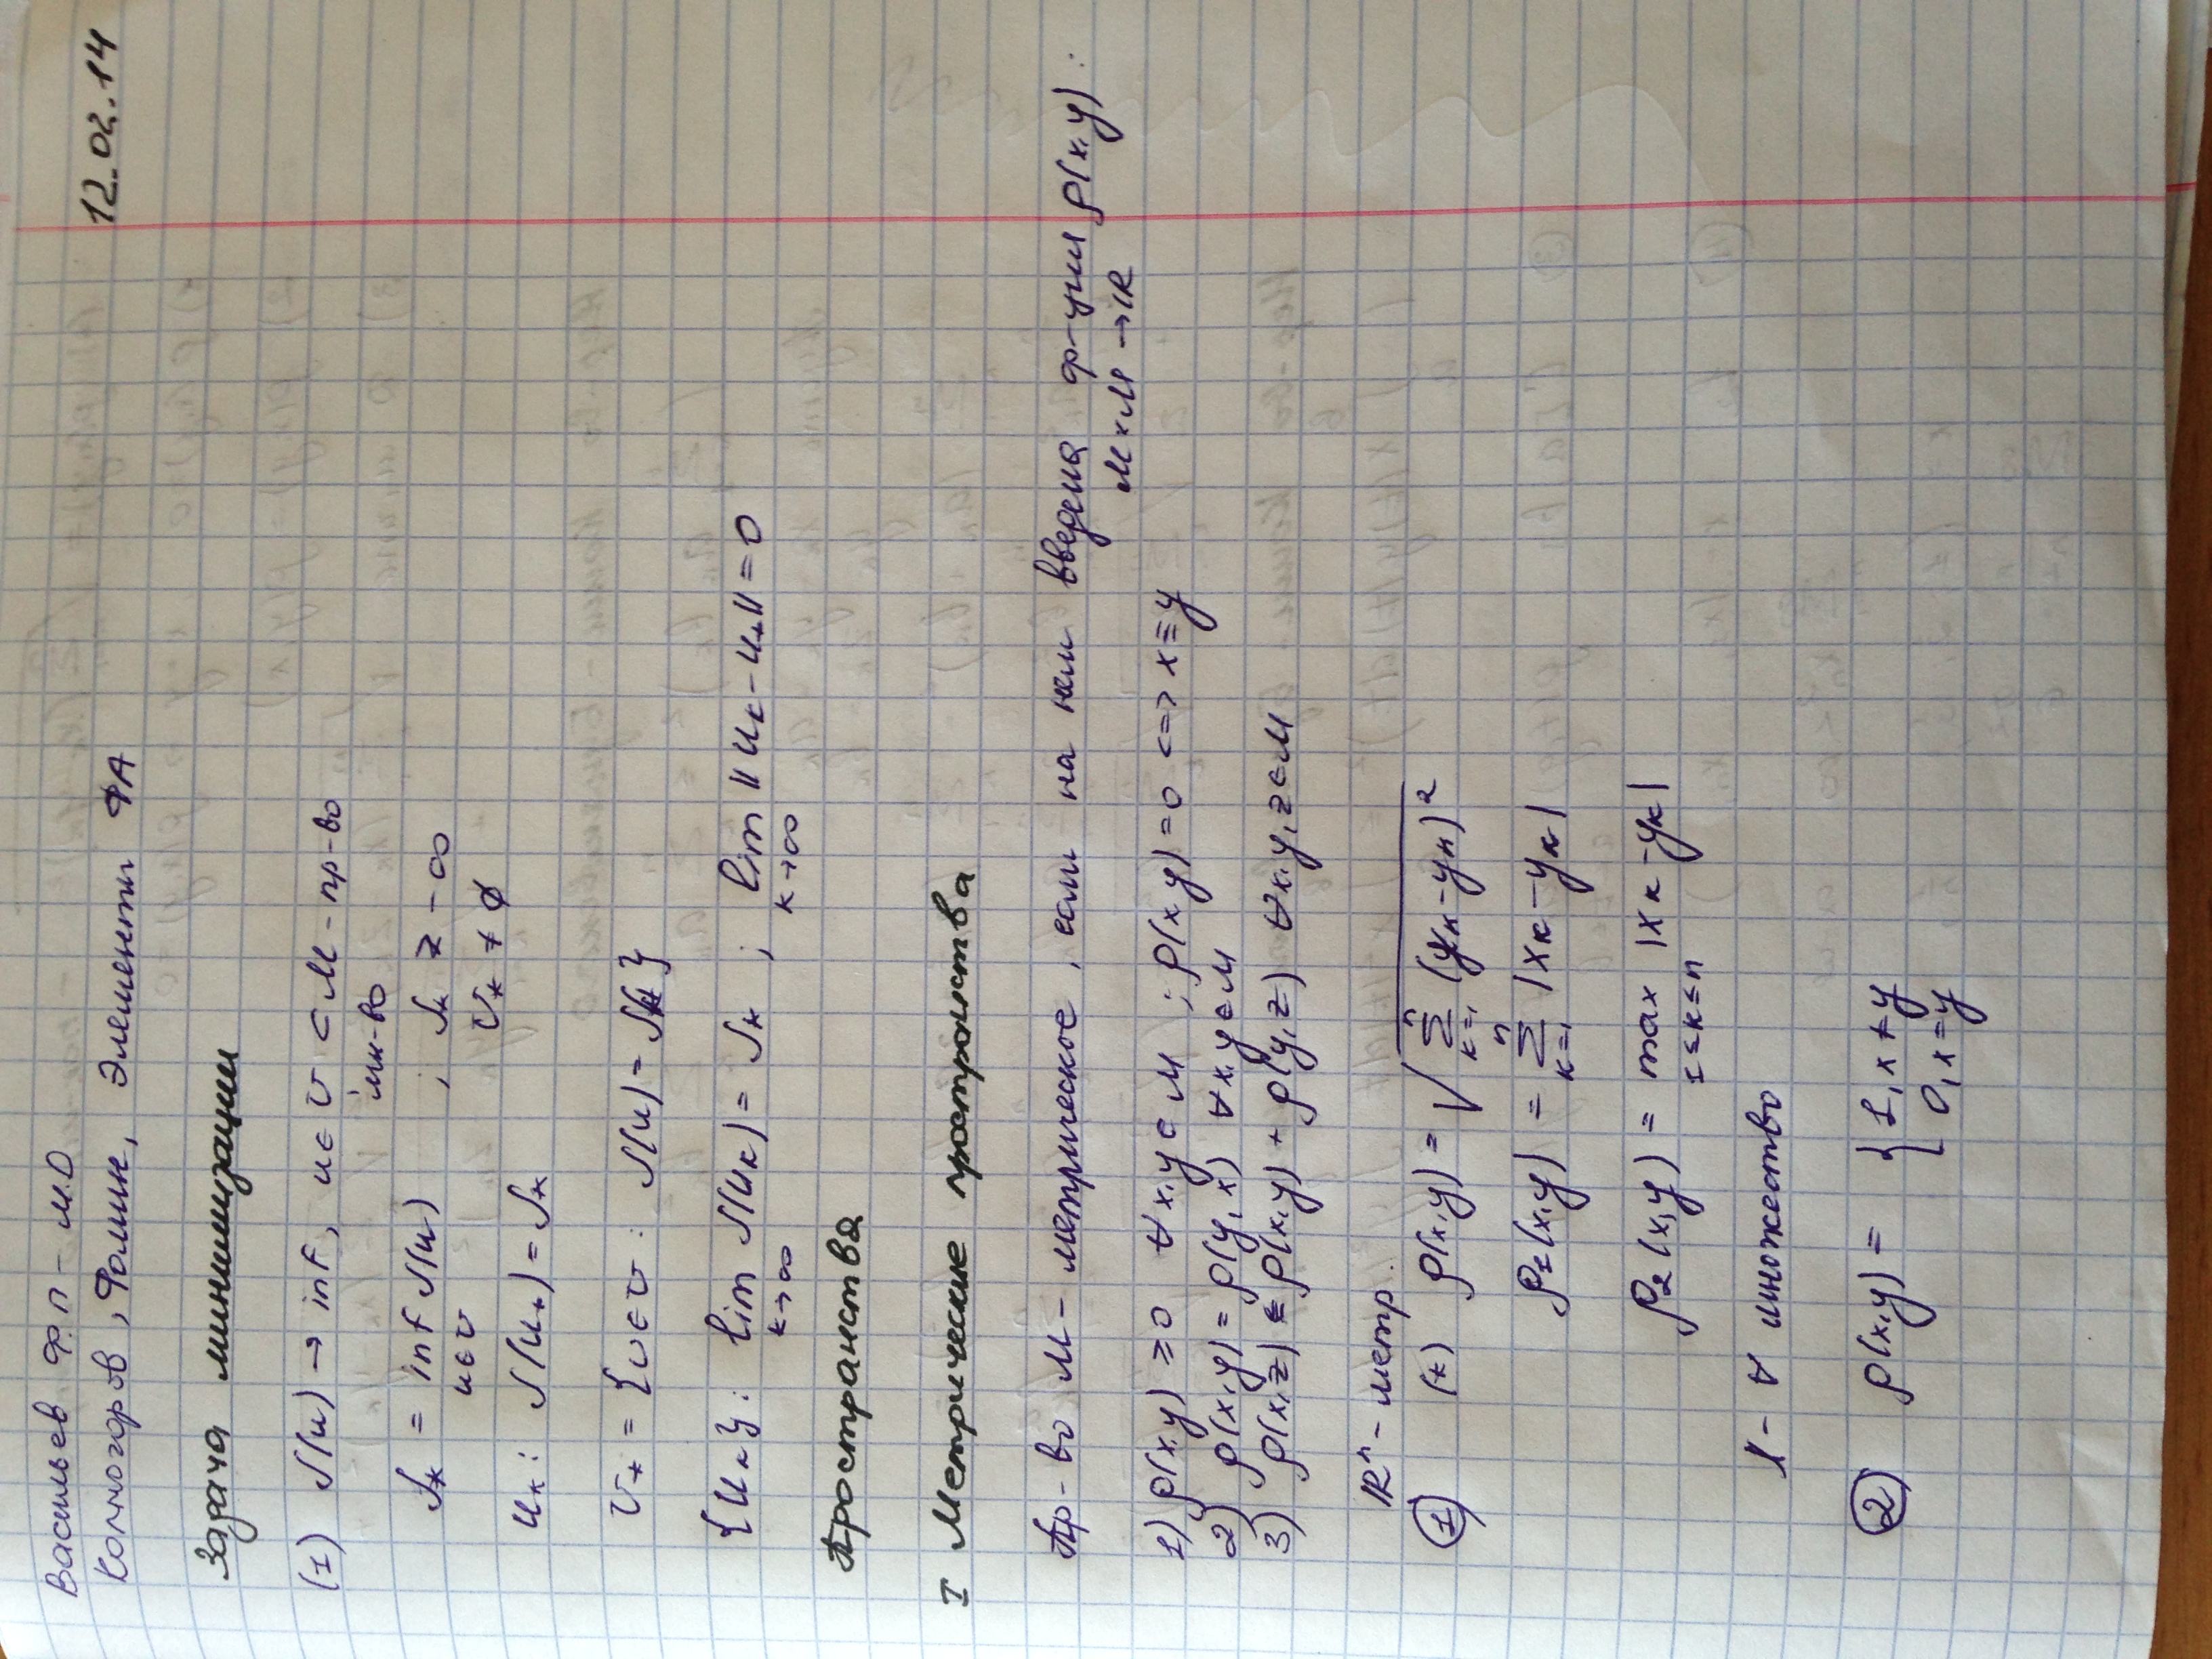 12.02.14
Васильев Ф.П - М.О
Колмогоров, Фомин, Элементы ФА
Задача минимизации
(1) J(u) → inf, u ∈ U ⊂ M - пр-во
мн-во
J* = inf J(u) ; J* ≠ -∞
u∈U U* ≠ ∅
u*: J(u*) = J*
U* = {u ∈ U : J(u) = J*}
{uк}: lim J(uк) = J* ; lim ||uк - u*|| = 0
к→∞ к→∞
Пространства
I Метрические пространства
Пр-во М - метрическое, если на нём введена ф-ция ρ(x,y):
M×M → ℝ
1) ρ(x,y) ≥ 0 ∀x,y ∈ M ; ρ(x,y) = 0 <=> x ≡ y
2) ρ(x,y) = ρ(y,x) ∀x,y ∈ M
3) ρ(x,z) ≤ ρ(x,y) + ρ(y,z) ∀x,y,z ∈ M
ℝⁿ - метр.
① (*) ρ(x,y) = √(∑ⁿₖ₌₁ (xк - yк)²)
ρ₁(x,y) = ∑ⁿₖ₌₁ |xк - yк|
ρ₂(x,y) = max |xк - yк|
1≤к≤n
X - ∀ множество
② ρ(x,y) = { 1, x ≠ y
0, x = y